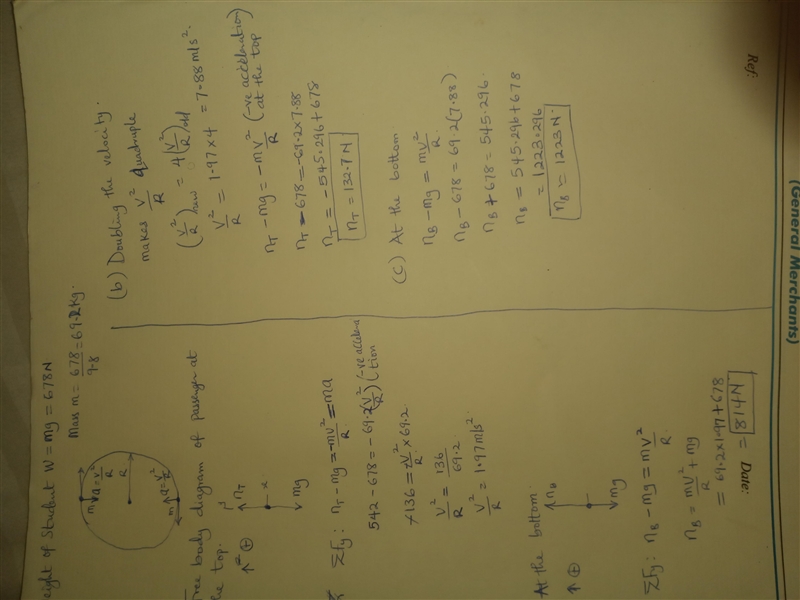 (General Merchants)
Ref:
Date:
eight of Student W = mg = 678N
Mass m = 678/9.8 = 69.2kg.
m
a = v²/R
R
m
a = v²/R
Free body diagram of passenger at
the top.
+
nT
x
mg
ΣFy: nT - mg = -mv²/R = ma
542 - 678 = -69.2(v²/R) (-ve acceleration
+136 = +v²/R × 69.2
v²/R = 136/69.2
v²/R = 1.97m/s².
At the bottom.
+
nB
mg
ΣFy: nB - mg = mv²/R
nB = mv²/R + mg
= 69.2×1.97+678
= 814N
(b) Doubling the velocity.
makes v²/R quadruple
(v²/R)new = 4(v²/R)old
v²/R = 1.97×4 = 7.88m/s².
nT - mg = -mv²/R (-ve acceleration) at the top
nT - 678 = -69.2×7.88
nT = -545.296+678
nT = 132.7N
(c) At the bottom.
nB - mg = mv²/R
nB - 678 = 69.2(7.88)
nB + 678 = 545.296.
nB = 545.296+678
= 1223.296
nB = 1223N